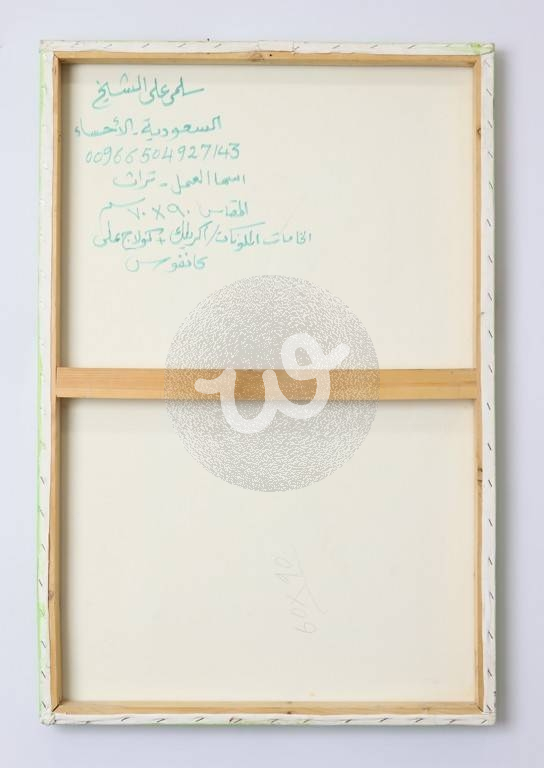 سلمى علي الشيخ
السعودية - الأحساء
00966504927143
اسم العمل - تراث
المقاس ٩٠ × ٧٠ سم
الخامات الملونات / اكريلك + كولاج على
كانفوس
60X90